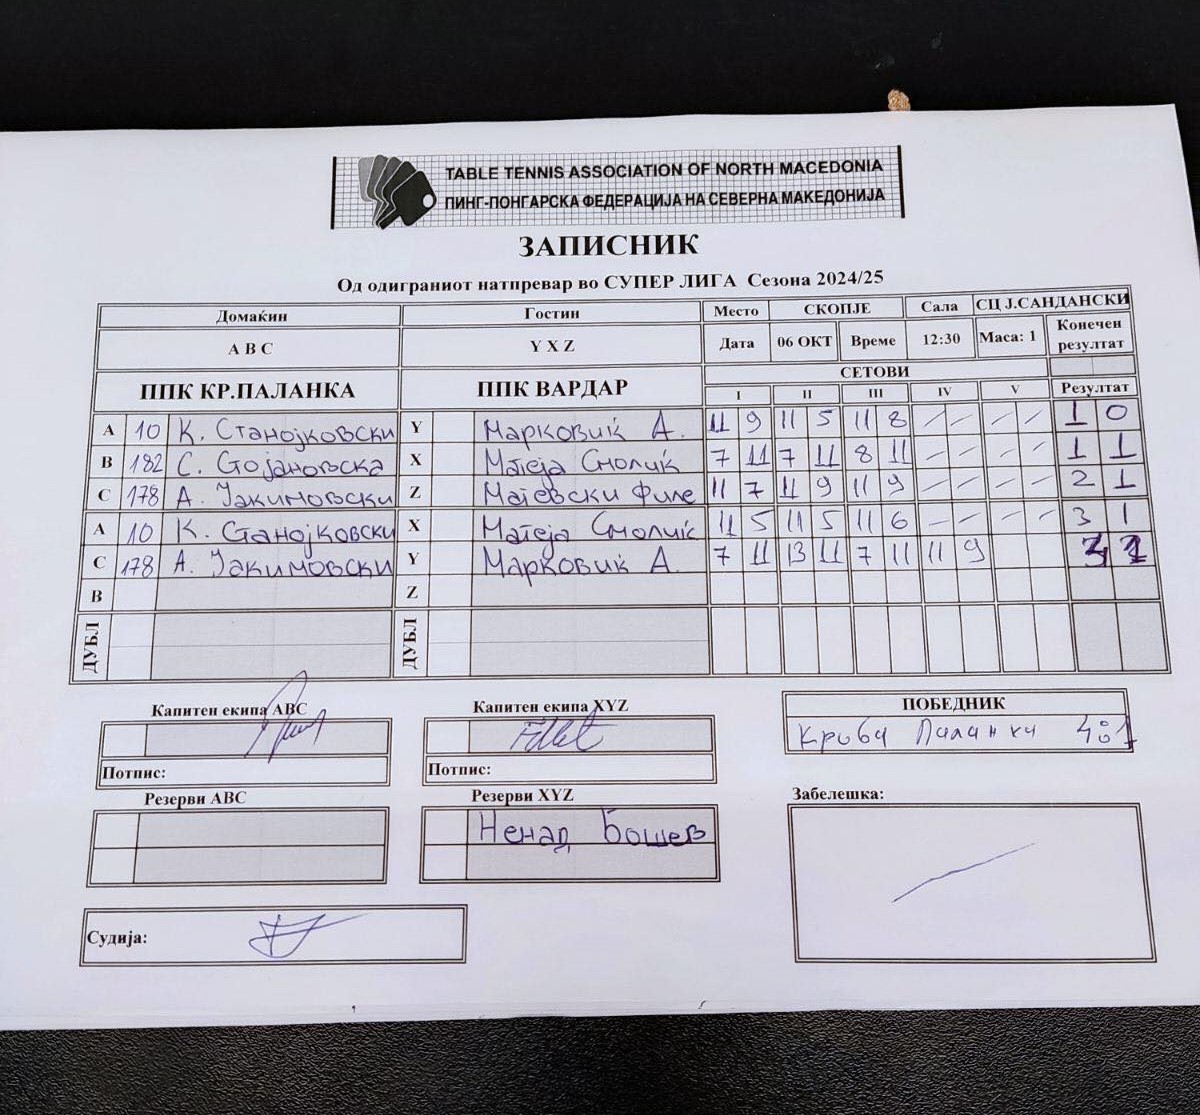 TABLE TENNIS ASSOCIATION OF NORTH MACEDONIA
ПИНГ-ПОНГАРСКА ФЕДЕРАЦИЈА НА СЕВЕРНА МАКЕДОНИЈА
ЗАПИСНИК
Од одиграниот натпревар во СУПЕР ЛИГА Сезона 2024/25
Домаќин Гостин Место СКОПЈЕ Сала СЦ Ј.САНДАНСКИ
A B C Y X Z Дата 06 ОКТ Време 12:30 Маса: 1 Конечен резултат
ППК КР.ПАЛАНКА ППК ВАРДАР СЕТОВИ
I II III IV V Резултат
A 10 К. Станојковски Y Марковиќ А. 11 9 11 5 11 8 – – – – 1 0
B 182 С. Стојановска X Матеја Смолиќ 7 11 7 11 8 11 – – – – 1 1
C 178 А. Јакимовски Z Матевски Филе 11 7 11 9 11 9 – – – – 2 1
A 10 К. Станојковски X Матеја Смолиќ 11 5 11 5 11 6 – – – – 3 1
C 178 А. Јакимовски Y Марковиќ А. 7 11 13 11 7 11 11 9
B Z
ДУБЛ ДУБЛ
Капитен екипа ABC Капитен екипа XYZ ПОБЕДНИК
Крива Паланка 4:1
Потпис: Потпис:
Резерви ABC Резерви XYZ Забелешка:
Ненад Бошев
Судија: